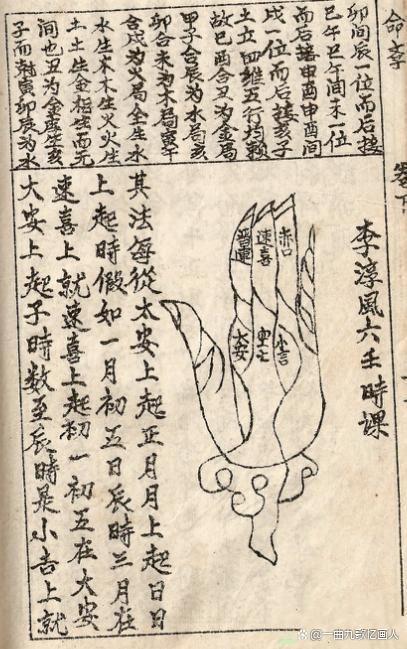 卯間辰一位而后接
巳午巳午間未一位
而后接申酉申酉間
戌一位而后接亥子
土立四維五行均敷
故巳酉合丑为金局
甲子合辰为水局亥
卯合未为木局寅午
合戌为火局金生水
水生木木生火火生
土土生金相生而无
間也丑为金庫生亥
子而射寅卯辰为水
卷下
李淳風六壬時課
赤口
速喜
小吉
空亡
大安
其法每從大安上起正月月上起日日
上起時假如一月初五日辰時三月在
速喜上就速喜上起初一初五在大安
大安上起子時数至辰時是小吉上就
@一曲九款忆画人